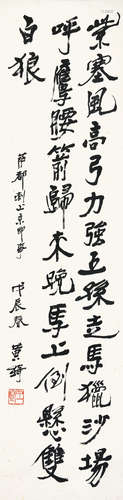 紫塞風高弓力強王孫走馬獵沙場
呼鷹腰箭歸來晚馬上倒懸雙
白狼
薩都剌上京即事
戊辰春 黄綺